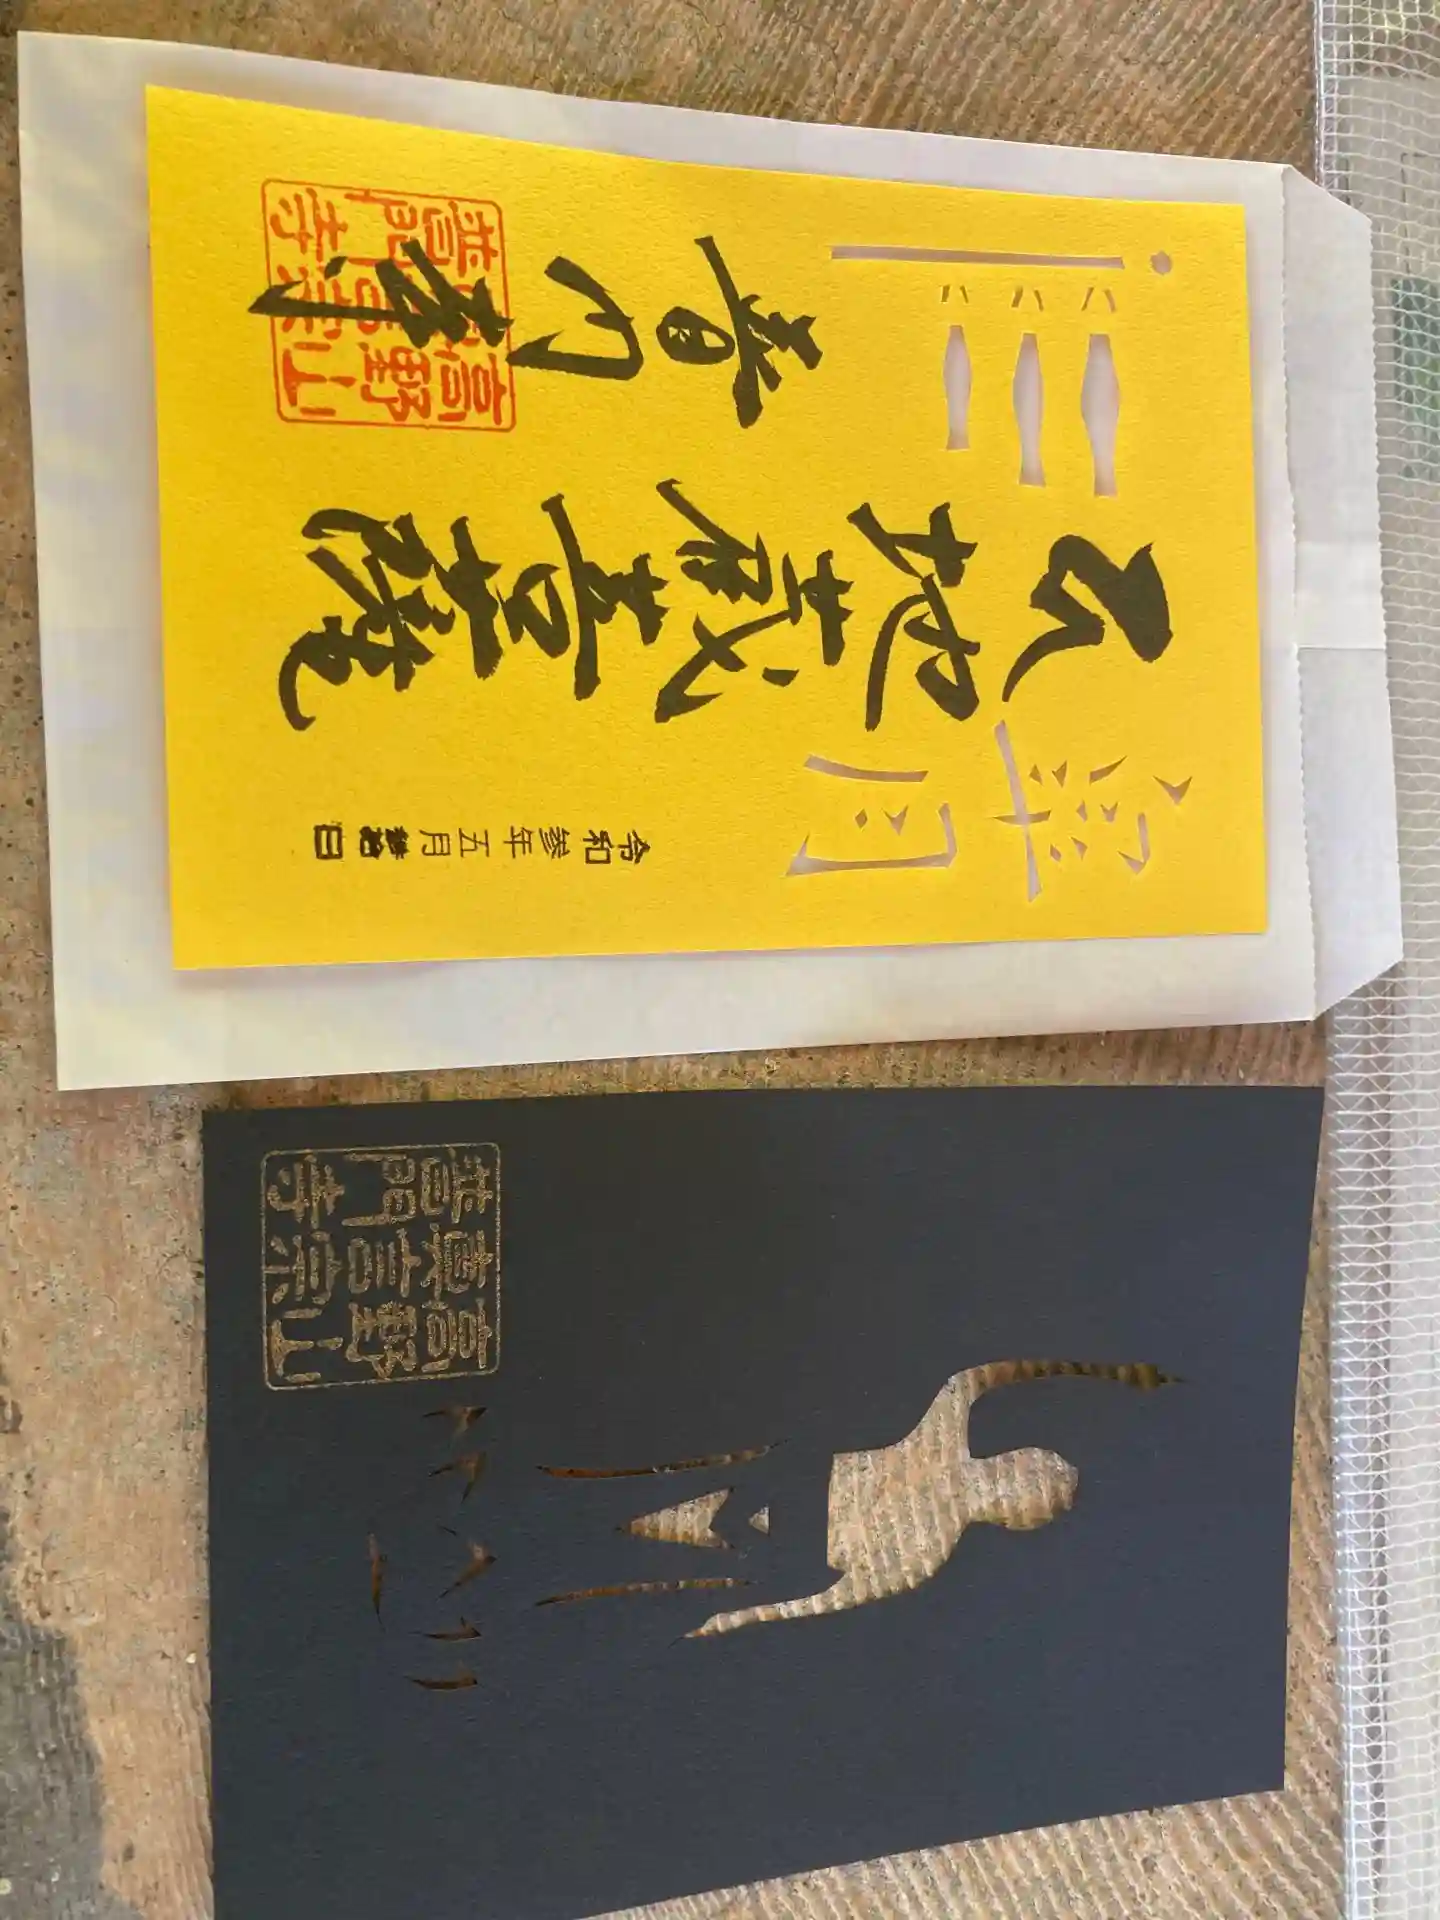 皐月
令和参年五月
地蔵菩薩
普門寺
高野山
真言宗
普門寺
高野山
真言宗
普門寺